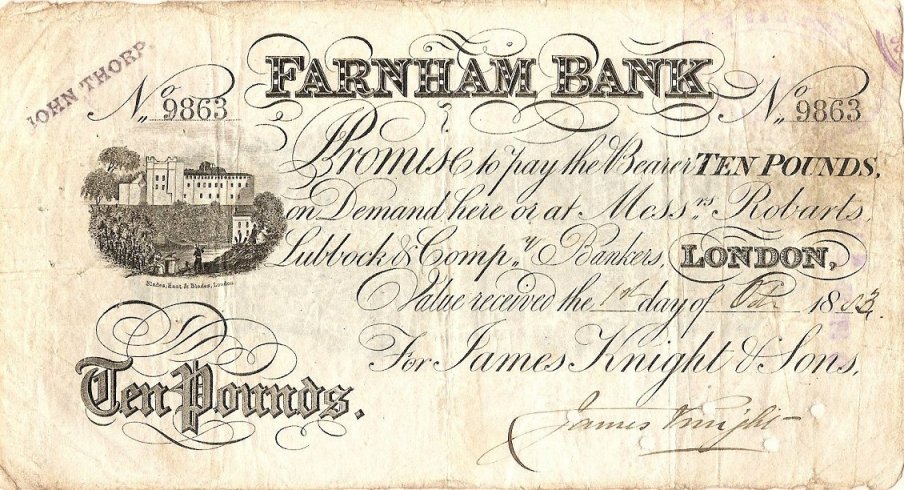 JOHN THORP.
FARNHAM BANK
No 9863 No 9863
Promise to pay the Bearer TEN POUNDS,
on Demand here or at Messrs. Robarts,
Lubbock & Compy. Bankers, LONDON,
Blades, East & Blades, London
Value received the 1st day of Oct. 1883.
For James Knight & Sons,
Ten Pounds.
James Knight